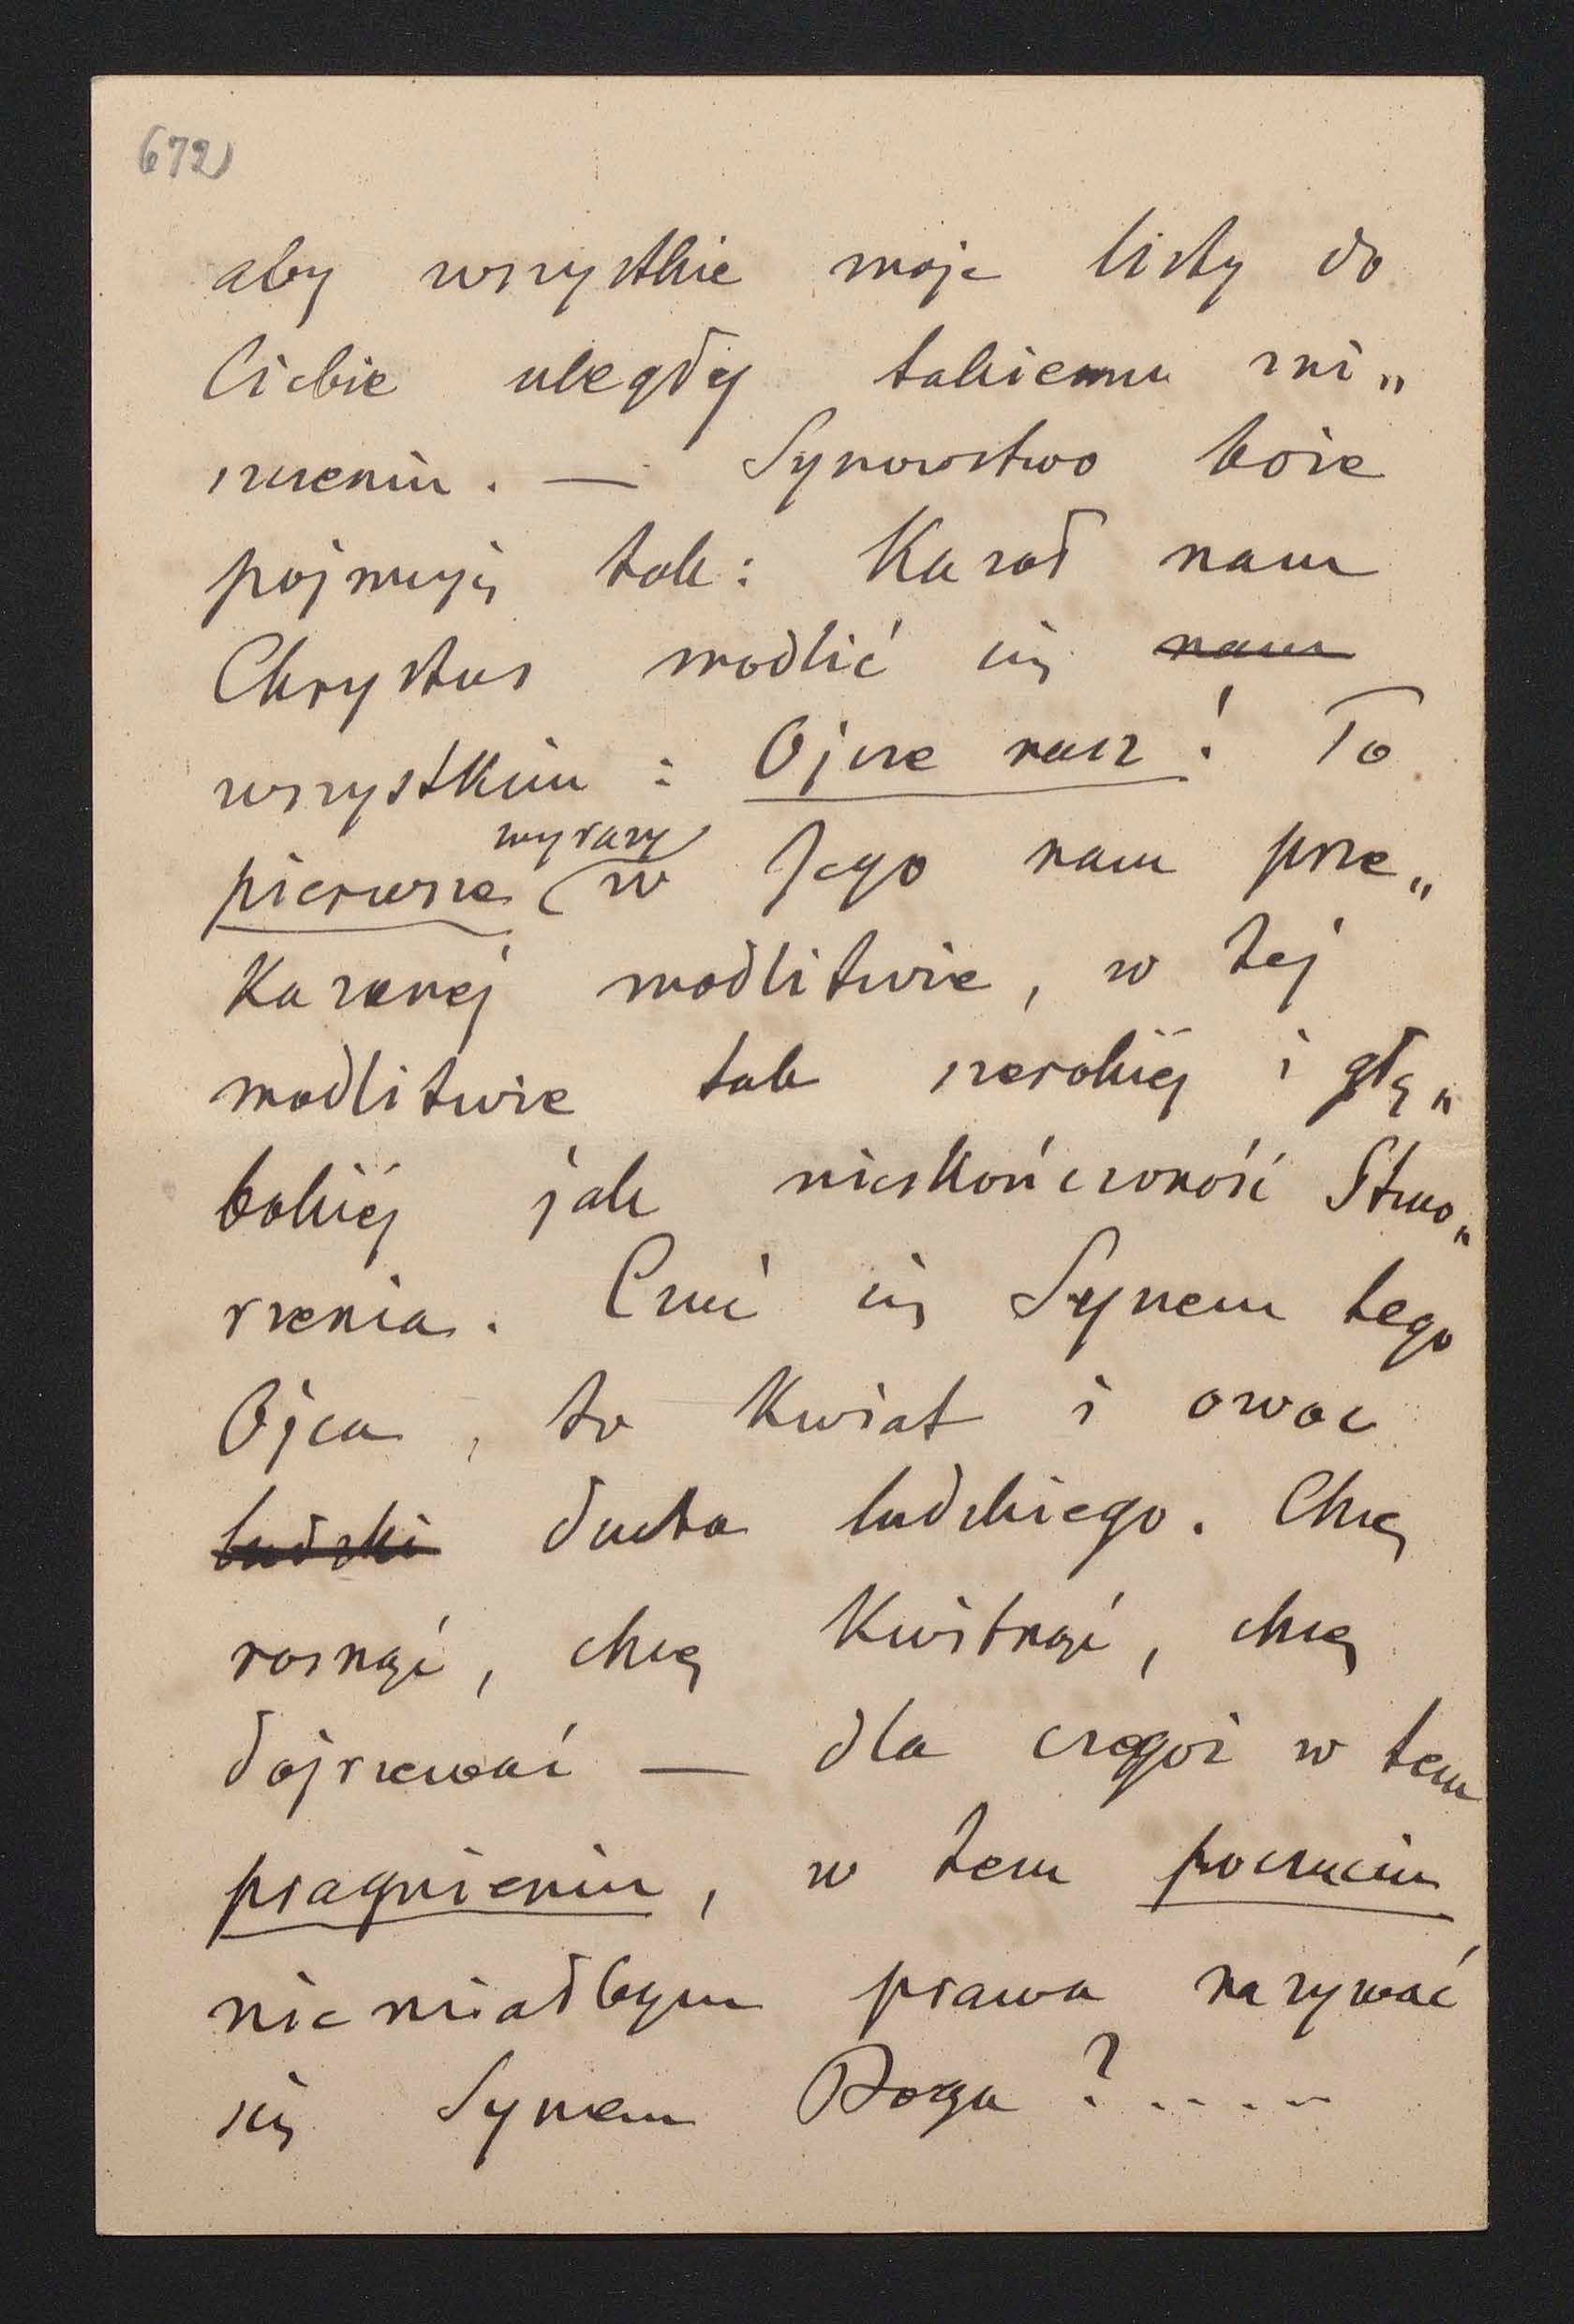 672)
aby wszystkie moje listy do
Ciebie uległy takiemu zni„
szczeniu. — Synowstwo boże
pojmuję tak: Kazał nam
Chrystus modlić się nam
wszystkim: Ojcze nasz! To
wyrazy
pierwsze w Jego nam prze„
kazanej modlitwie, w tej
modlitwie tak szerokiéj i głę„
bokiéj jak nieskończoność Stwo„
rzenia. Czuć się Synem tego
Ojca, to kwiat i owoc
ludzki ducha ludzkiego. Chcę
rosnąć, chcę kwitnąć, chcę
dojrzewać — dla czegoż w tem
pragnieniu, w tem poczuciu
nie miałbym prawa nazywać
się Synem Boga? .....